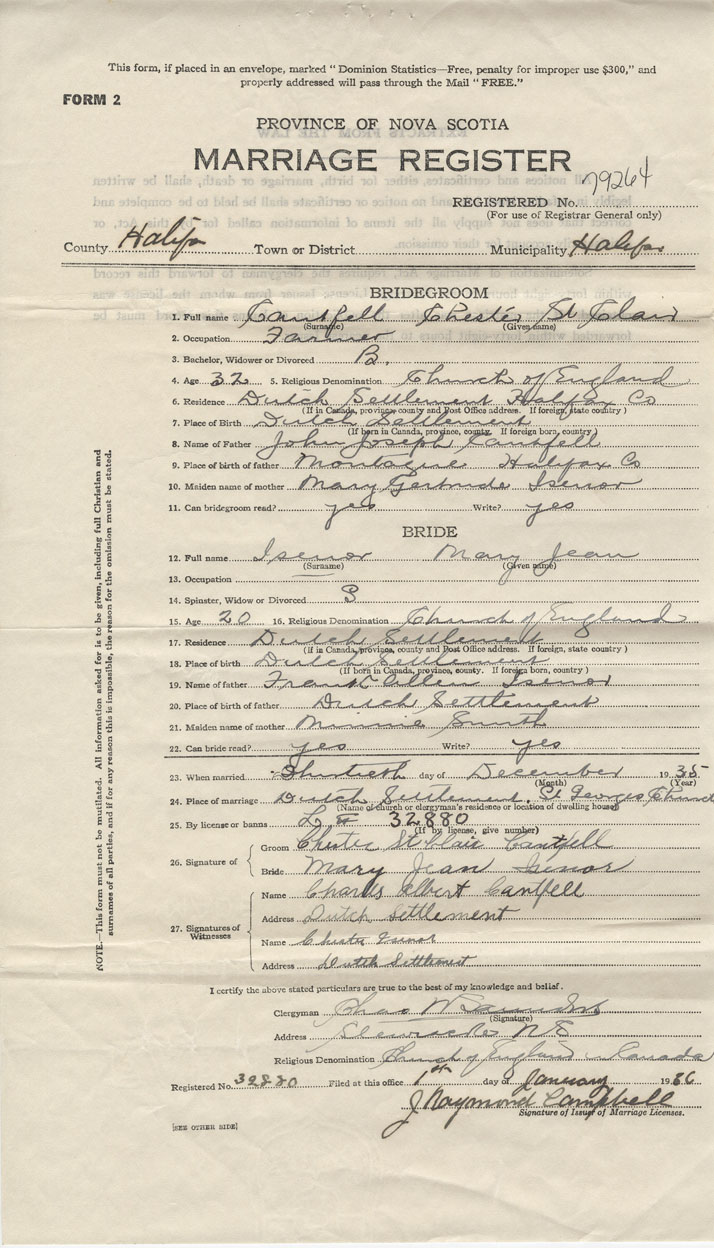 This form, if placed in an envelope, marked " Dominion Statistics—Free, penalty for improper use $300," and
properly addressed will pass through the Mail " FREE."
FORM 2
PROVINCE OF NOVA SCOTIA
MARRIAGE REGISTER
REGISTERED No. 79264
(For use of Registrar General only)
County Halifax Town or District Municipality Halifax
BRIDEGROOM
1. Full name Cantfell Chester St Clair
(Surname) (Given name)
2. Occupation Farmer
3. Bachelor, Widower or Divorced B.
4. Age 32 5. Religious Denomination Church of England
6. Residence Dutch Settlement Halifax Co
(If in Canada, province, county and Post Office address. If foreign, state country )
7. Place of Birth Dutch Settlement
(If born in Canada, province, county. If foreign born, country )
8. Name of Father John Joseph Cantfell
9. Place of birth of father Montague Halifax Co
10. Maiden name of mother Mary Gertrude Isenor
11. Can bridegroom read? yes Write? yes
BRIDE
12. Full name Isenor Mary Jean
(Surname) (Given name)
13. Occupation
14. Spinster, Widow or Divorced S
15. Age 20 16. Religious Denomination Church of England
17. Residence Dutch Settlement
(If in Canada, province, county and Post Office address. If foreign, state country )
18. Place of birth Dutch Settlement
(If born in Canada, province, county. If foreign born, country )
19. Name of father Frank Allen Isenor
20. Place of birth of father Dutch Settlement
21. Maiden name of mother Minnie Smith
22. Can bride read? yes Write? yes
23. When married Thirtieth day of December 1935
(Month) (Year)
24. Place of marriage Dutch Settlement, St Georges Church
(Name of church or clergyman's residence or location of dwelling house)
25. By license or banns L # 32880
(If by license, give number)
26. Signature of
Groom Chester St Clair Cantfell
Bride Mary Jean Isenor
27. Signatures of Witnesses
Name Charls Albert Cantfell
Address Dutch Settlement
Name Chester Isenor
Address Dutch Settlement
I certify the above stated particulars are true to the best of my knowledge and belief.
Clergyman Chas W Saunders
(Signature)
Address N.S
Religious Denomination Church of England in Canada
Registered No. 32880 Filed at this office day of January 1936
J Raymond Campbell
Signature of Issuer of Marriage Licenses.
[SEE OTHER SIDE]
NOTE.—This form must not be mutilated. All information asked for is to be given, including full Christian and
surnames of all parties, and if for any reason this is impossible, the reason for the omission must be stated.